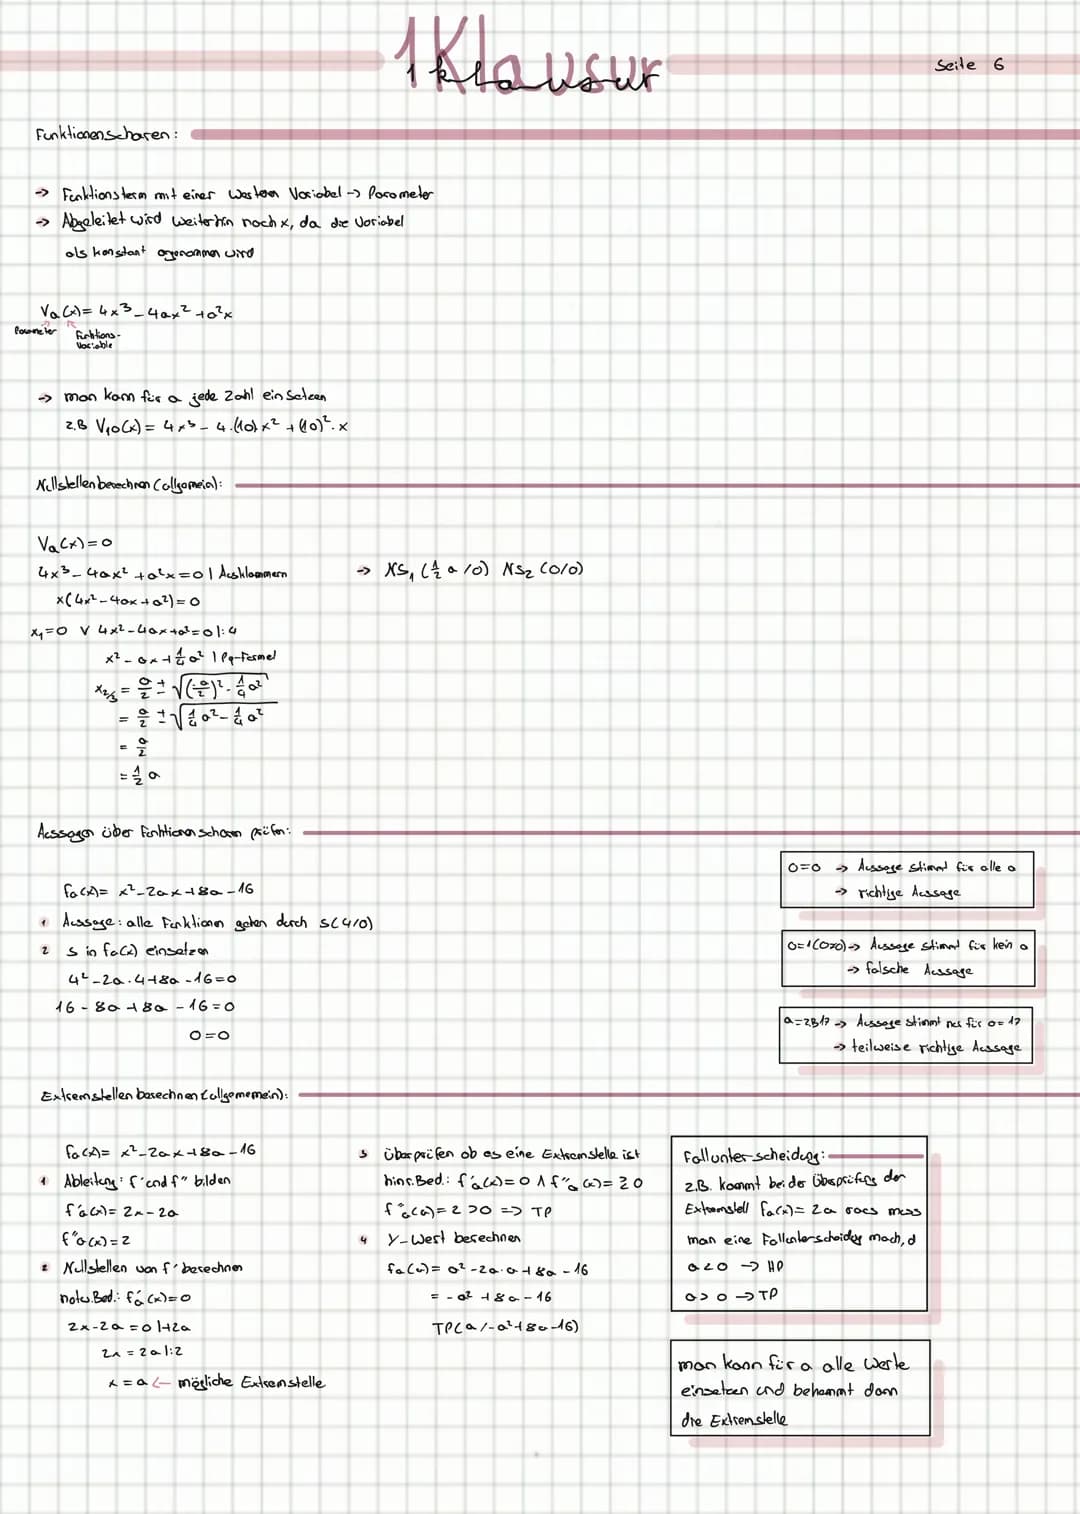 1 Klausur
1 klausur
Seite 6
Funktionenscharen:
-> Funktionsterm mit einer weiteren Variabel -> Parameter
-> Abgeleitet wird weiterhin nach x, da die Variabel
als konstant angenommen wird
Va(x) = 4x³ - 4ax² + a²x
Parameter
Funktions-
Variable
-> man kann für a jede Zahl einsetzen
z.B V₁₀(x) = 4x³ - 4·(10)x² + (10)²·x
Nullstellen berechnen (allgemein):
Va(x) = 0
4x³ - 4ax² + a²x = 0 | Ausklammern
x(4x² - 4ax + a²) = 0
x₁ = 0 ∨ 4x² - 4ax + a² = 0 |: 4
x² - ax + 1/4 a² | Pq-Formel
x₂/₃ = a/2 ± √((-a/2)² - 1/4 a²)
= a/2 ± √(1/4 a² - 1/4 a²)
= a/2
= 1/2 a
-> NS₁ (1/2 a / 0) NS₂ (0/0)
Aussagen über Funktionenscharen prüfen:
fa(x) = x² - 2ax + 8a - 16
1 Aussage: alle Funktionen gehen durch S(4/0)
2 S in fa(x) einsetzen
4² - 2a·4 + 8a - 16 = 0
16 - 8a + 8a - 16 = 0
0 = 0
0=0 -> Aussage stimmt für alle a
-> richtige Aussage
0=1 (0≠0) -> Aussage stimmt für kein a
-> falsche Aussage
a=zB17 -> Aussage stimmt nur für a=17
-> teilweise richtige Aussage
Extremstellen berechnen (allgemein):
fa(x) = x² - 2ax + 8a - 16
1 Ableitung: f' und f'' bilden
f'a(x) = 2x - 2a
f''a(x) = 2
2 Nullstellen von f' berechnen
notw.Bed.: f'a(x) = 0
2x - 2a = 0 |+2a
2x = 2a |:2
x = a <- mögliche Extremstelle
3 überprüfen ob es eine Extremstelle ist
hinr.Bed.: f'a(x) = 0 ∧ f''a(x) = ≷ 0
f''a(a) = 2 > 0 => TP
4 Y-Wert berechnen
fa(a) = a² - 2a·a + 8a - 16
= -a² + 8a - 16
TP(a / -a² + 8a - 16)
Fallunterscheidung:
z.B. kommt bei der Überprüfung der
Extremstell fa(x) = 2a raus muss
man eine Fallunterscheidug mach, d
a < 0 -> HP
a > 0 -> TP
man kann für a alle Werte
einsetzen und bekommt dann
die Extremstelle